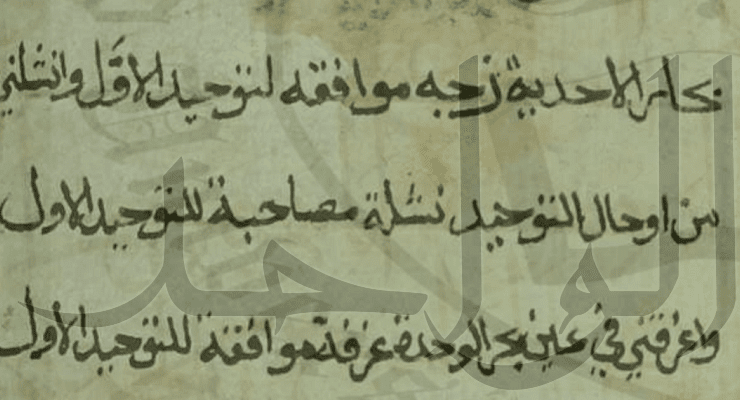 بحار الاحدية زجه موافقه لتوحيد الاوّل وانشلني
من اوحال التوحيد نشلة مصاحبة للتوحيد الاول
واغرقني في عين بحر الوحدة غرقة موافقة للتوحيد الأول